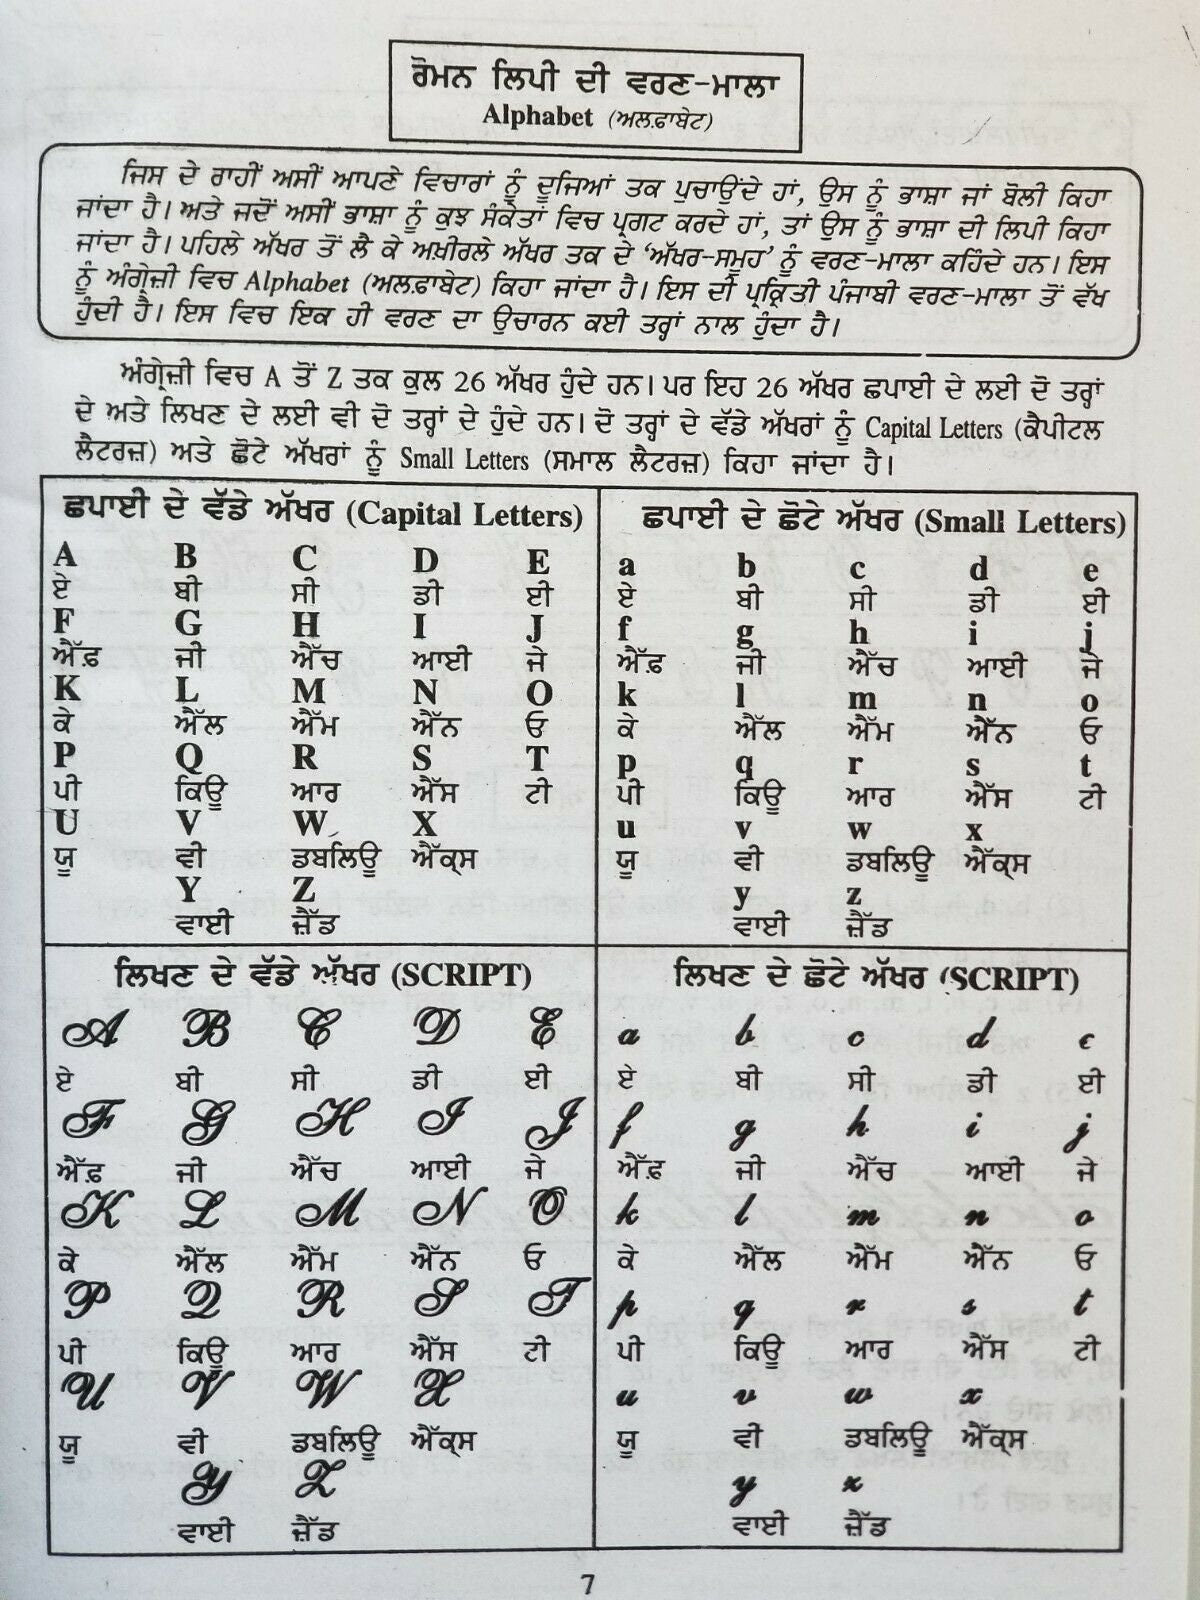 ਰੋਮਨ ਲਿਪੀ ਦੀ ਵਰਣ-ਮਾਲਾ
Alphabet (ਅਲਫ਼ਾਬੇਟ)
ਜਿਸ ਦੇ ਰਾਹੀਂ ਅਸੀਂ ਆਪਣੇ ਵਿਚਾਰਾਂ ਨੂੰ ਦੂਜਿਆਂ ਤਕ ਪੁਚਾਉਂਦੇ ਹਾਂ, ਉਸ ਨੂੰ ਭਾਸ਼ਾ ਜਾਂ ਬੋਲੀ ਕਿਹਾ
ਜਾਂਦਾ ਹੈ। ਅਤੇ ਜਦੋਂ ਅਸੀਂ ਭਾਸ਼ਾ ਨੂੰ ਕੁਝ ਸੰਕੇਤਾਂ ਵਿਚ ਪ੍ਰਗਟ ਕਰਦੇ ਹਾਂ, ਤਾਂ ਉਸ ਨੂੰ ਭਾਸ਼ਾ ਦੀ ਲਿਪੀ ਕਿਹਾ
ਜਾਂਦਾ ਹੈ। ਪਹਿਲੇ ਅੱਖਰ ਤੋਂ ਲੈ ਕੇ ਅਖ਼ੀਰਲੇ ਅੱਖਰ ਤਕ ਦੇ 'ਅੱਖਰ-ਸਮੂਹ' ਨੂੰ ਵਰਣ-ਮਾਲਾ ਕਹਿੰਦੇ ਹਨ। ਇਸ
ਨੂੰ ਅੰਗ੍ਰੇਜ਼ੀ ਵਿਚ Alphabet (ਅਲਫ਼ਾਬੇਟ) ਕਿਹਾ ਜਾਂਦਾ ਹੈ। ਇਸ ਦੀ ਪ੍ਰਕ੍ਰਿਤੀ ਪੰਜਾਬੀ ਵਰਣ-ਮਾਲਾ ਤੋਂ ਵੱਖ
ਹੁੰਦੀ ਹੈ। ਇਸ ਵਿਚ ਇਕ ਹੀ ਵਰਣ ਦਾ ਉਚਾਰਨ ਕਈ ਤਰ੍ਹਾਂ ਨਾਲ ਹੁੰਦਾ ਹੈ।
ਅੰਗ੍ਰੇਜ਼ੀ ਵਿਚ A ਤੋਂ Z ਤਕ ਕੁਲ 26 ਅੱਖਰ ਹੁੰਦੇ ਹਨ। ਪਰ ਇਹ 26 ਅੱਖਰ ਛਪਾਈ ਦੇ ਲਈ ਦੋ ਤਰ੍ਹਾਂ
ਦੇ ਅਤੇ ਲਿਖਣ ਦੇ ਲਈ ਵੀ ਦੋ ਤਰ੍ਹਾਂ ਦੇ ਹੁੰਦੇ ਹਨ। ਦੋ ਤਰ੍ਹਾਂ ਦੇ ਵੱਡੇ ਅੱਖਰਾਂ ਨੂੰ Capital Letters (ਕੈਪੀਟਲ
ਲੈਟਰਜ਼) ਅਤੇ ਛੋਟੇ ਅੱਖਰਾਂ ਨੂੰ Small Letters (ਸਮਾਲ ਲੈਟਰਜ਼) ਕਿਹਾ ਜਾਂਦਾ ਹੈ।
ਛਪਾਈ ਦੇ ਵੱਡੇ ਅੱਖਰ (Capital Letters)
A B C D E
ਏ ਬੀ ਸੀ ਡੀ ਈ
F G H I J
ਐੱਫ਼ ਜੀ ਐੱਚ ਆਈ ਜੇ
K L M N O
ਕੇ ਐੱਲ ਐੱਮ ਐੱਨ ਓ
P Q R S T
ਪੀ ਕਿਊ ਆਰ ਐੱਸ ਟੀ
U V W X
ਯੂ ਵੀ ਡਬਲਿਊ ਐੱਕ੍ਸ
Y Z
ਵਾਈ ਜ਼ੈੱਡ
ਛਪਾਈ ਦੇ ਛੋਟੇ ਅੱਖਰ (Small Letters)
a b c d e
ਏ ਬੀ ਸੀ ਡੀ ਈ
f g h i j
ਐੱਫ਼ ਜੀ ਐੱਚ ਆਈ ਜੇ
k l m n o
ਕੇ ਐੱਲ ਐੱਮ ਐੱਨ ਓ
p q r s t
ਪੀ ਕਿਊ ਆਰ ਐੱਸ ਟੀ
u v w x
ਯੂ ਵੀ ਡਬਲਿਊ ਐੱਕ੍ਸ
y z
ਵਾਈ ਜ਼ੈੱਡ
ਲਿਖਣ ਦੇ ਵੱਡੇ ਅੱਖਰ (SCRIPT)
A B C D E
ਏ ਬੀ ਸੀ ਡੀ ਈ
F G H I J
ਐੱਫ਼ ਜੀ ਐੱਚ ਆਈ ਜੇ
K L M N O
ਕੇ ਐੱਲ ਐੱਮ ਐੱਨ ਓ
P Q R S T
ਪੀ ਕਿਊ ਆਰ ਐੱਸ ਟੀ
U V W X
ਯੂ ਵੀ ਡਬਲਿਊ ਐੱਕ੍ਸ
Y Z
ਵਾਈ ਜ਼ੈੱਡ
ਲਿਖਣ ਦੇ ਛੋਟੇ ਅੱਖਰ (SCRIPT)
a b c d e
ਏ ਬੀ ਸੀ ਡੀ ਈ
f g h i j
ਐੱਫ਼ ਜੀ ਐੱਚ ਆਈ ਜੇ
k l m n o
ਕੇ ਐੱਲ ਐੱਮ ਐੱਨ ਓ
p q r s t
ਪੀ ਕਿਊ ਆਰ ਐੱਸ ਟੀ
u v w x
ਯੂ ਵੀ ਡਬਲਿਊ ਐੱਕ੍ਸ
y z
ਵਾਈ ਜ਼ੈੱਡ
7